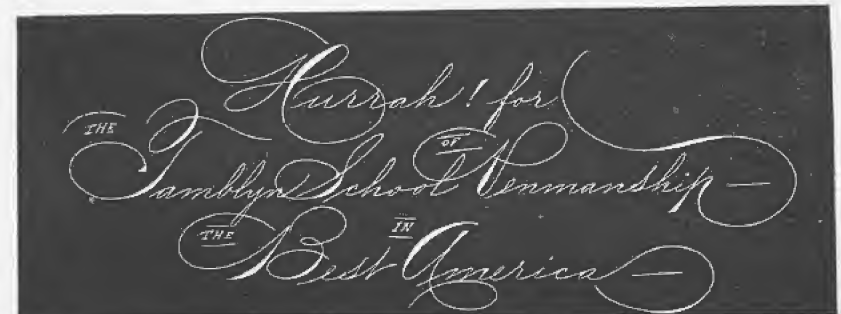 Hurrah! for
THE Tamblyn School OF Penmanship —
THE Best IN America —